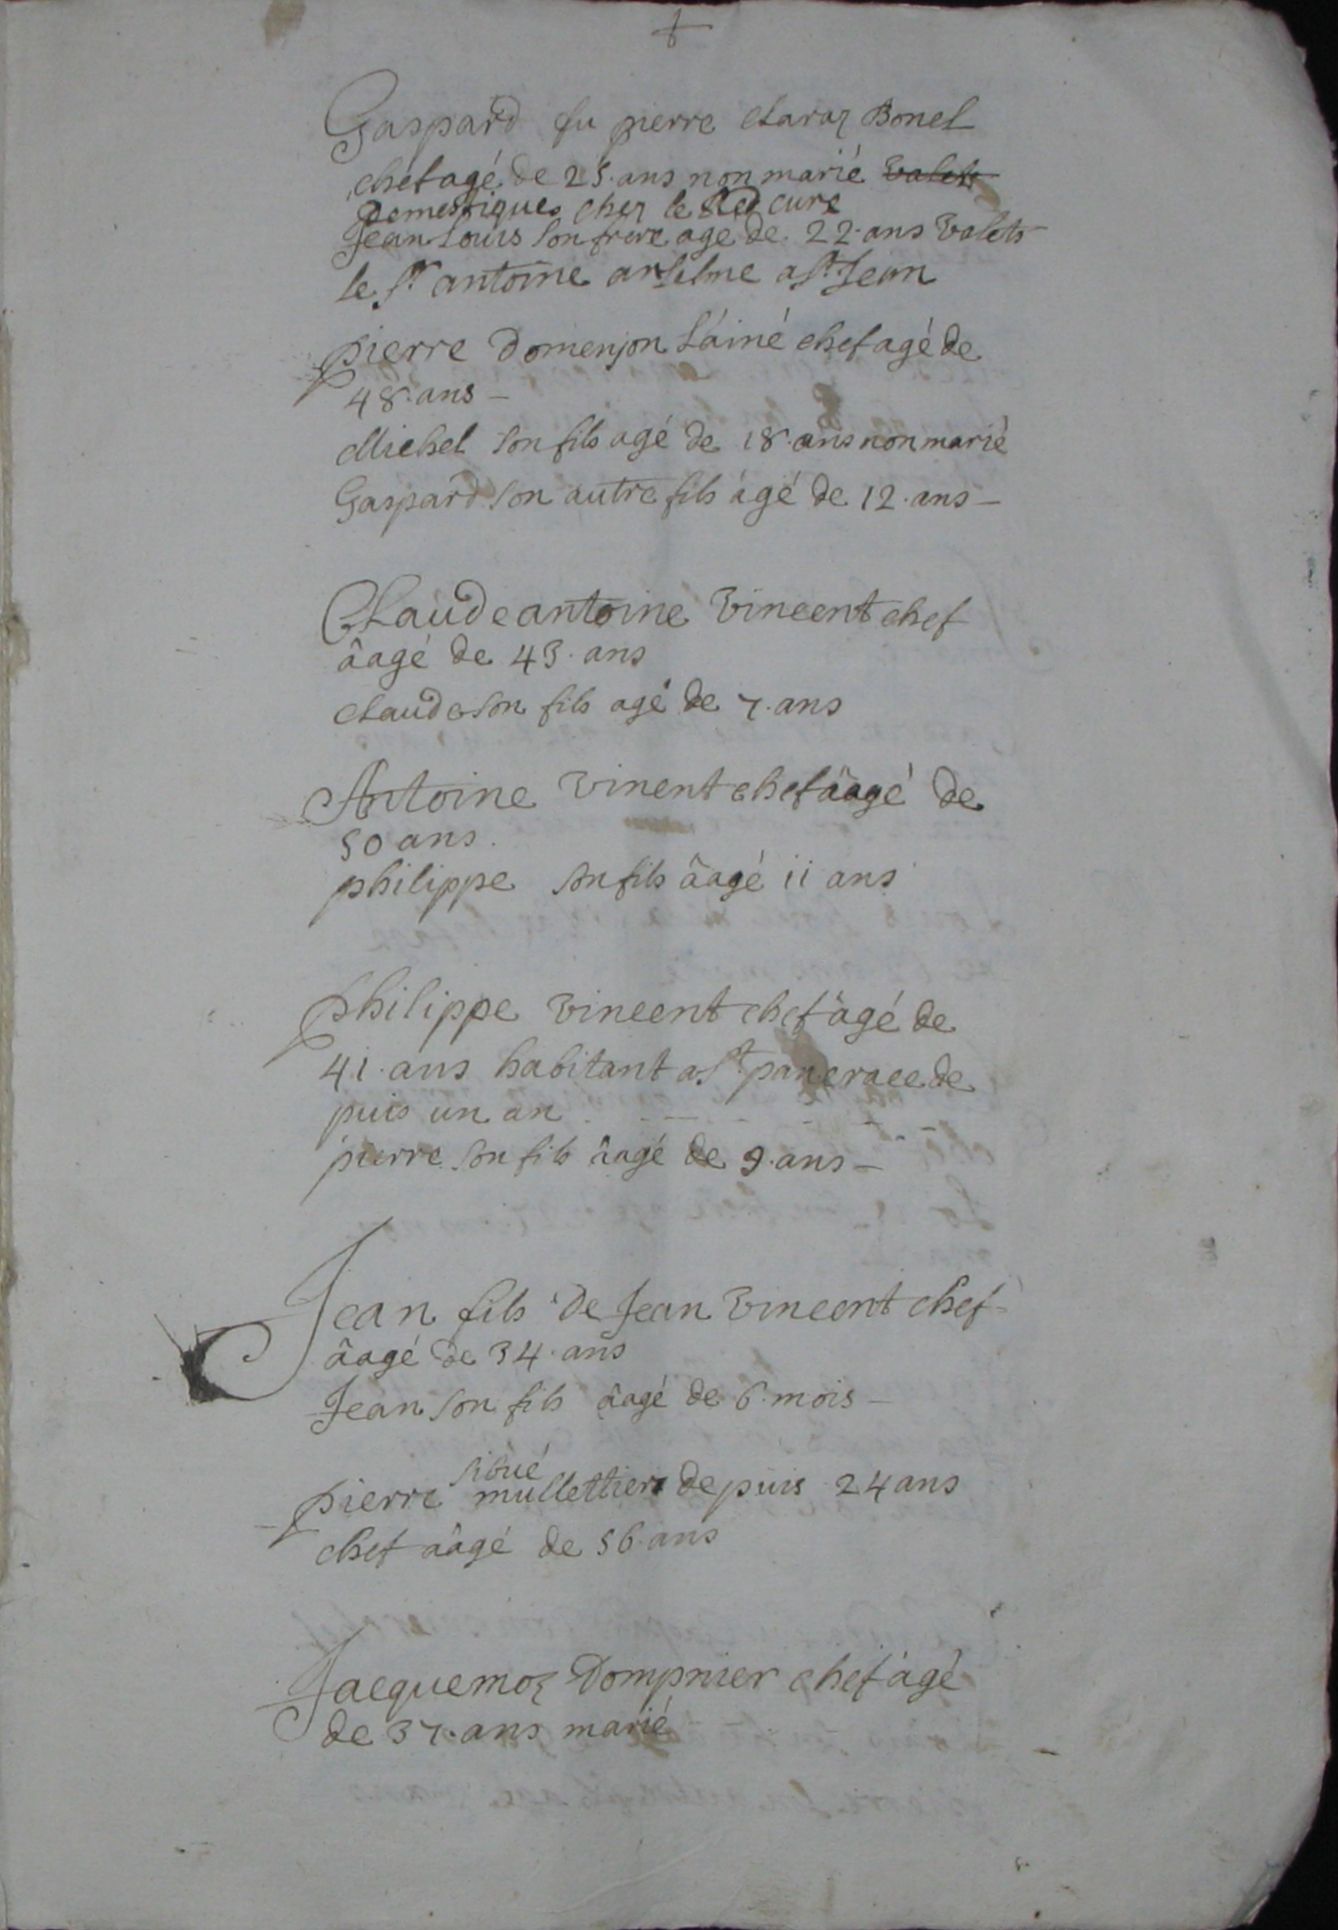 +
Gaspard fu pierre claraz Bonel
chef agé de 25. ans non marié valets
Domestiques chez le Red curé
Jean Louis son frere agé de 22. ans valets
le Sr antoine anselme a St Jean
pierre Domenjon L'áiné chef agé de
48. ans -
Michel son fils agé de 18. ans non marié
Gaspard son autre fils àgé de 12. ans -
Claude antoine vincent chef
âagé de 43. ans
claude son fils agé de 7. ans
Antoine vinent chef âagé de
50 ans.
philippe son fils âagé ii ans
philippe vincent chef âgé de
4i. ans habitant a St pancrace de
puis un an. - - - - - -
pierre son fils âagé de 9. ans -
Jean fils de Jean vincent chef -
âagé de 34. ans
Jean son fils âagé de 6. mois -
sibué
pierre mullettier depuis 24 ans
chef aâgé de 56. ans
Jacquemoz Dompnier chef àgé
de 37. ans marié